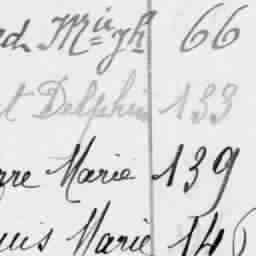 Mie yh 66
t Delphin 133
rre Marie 139
uis Marie 146